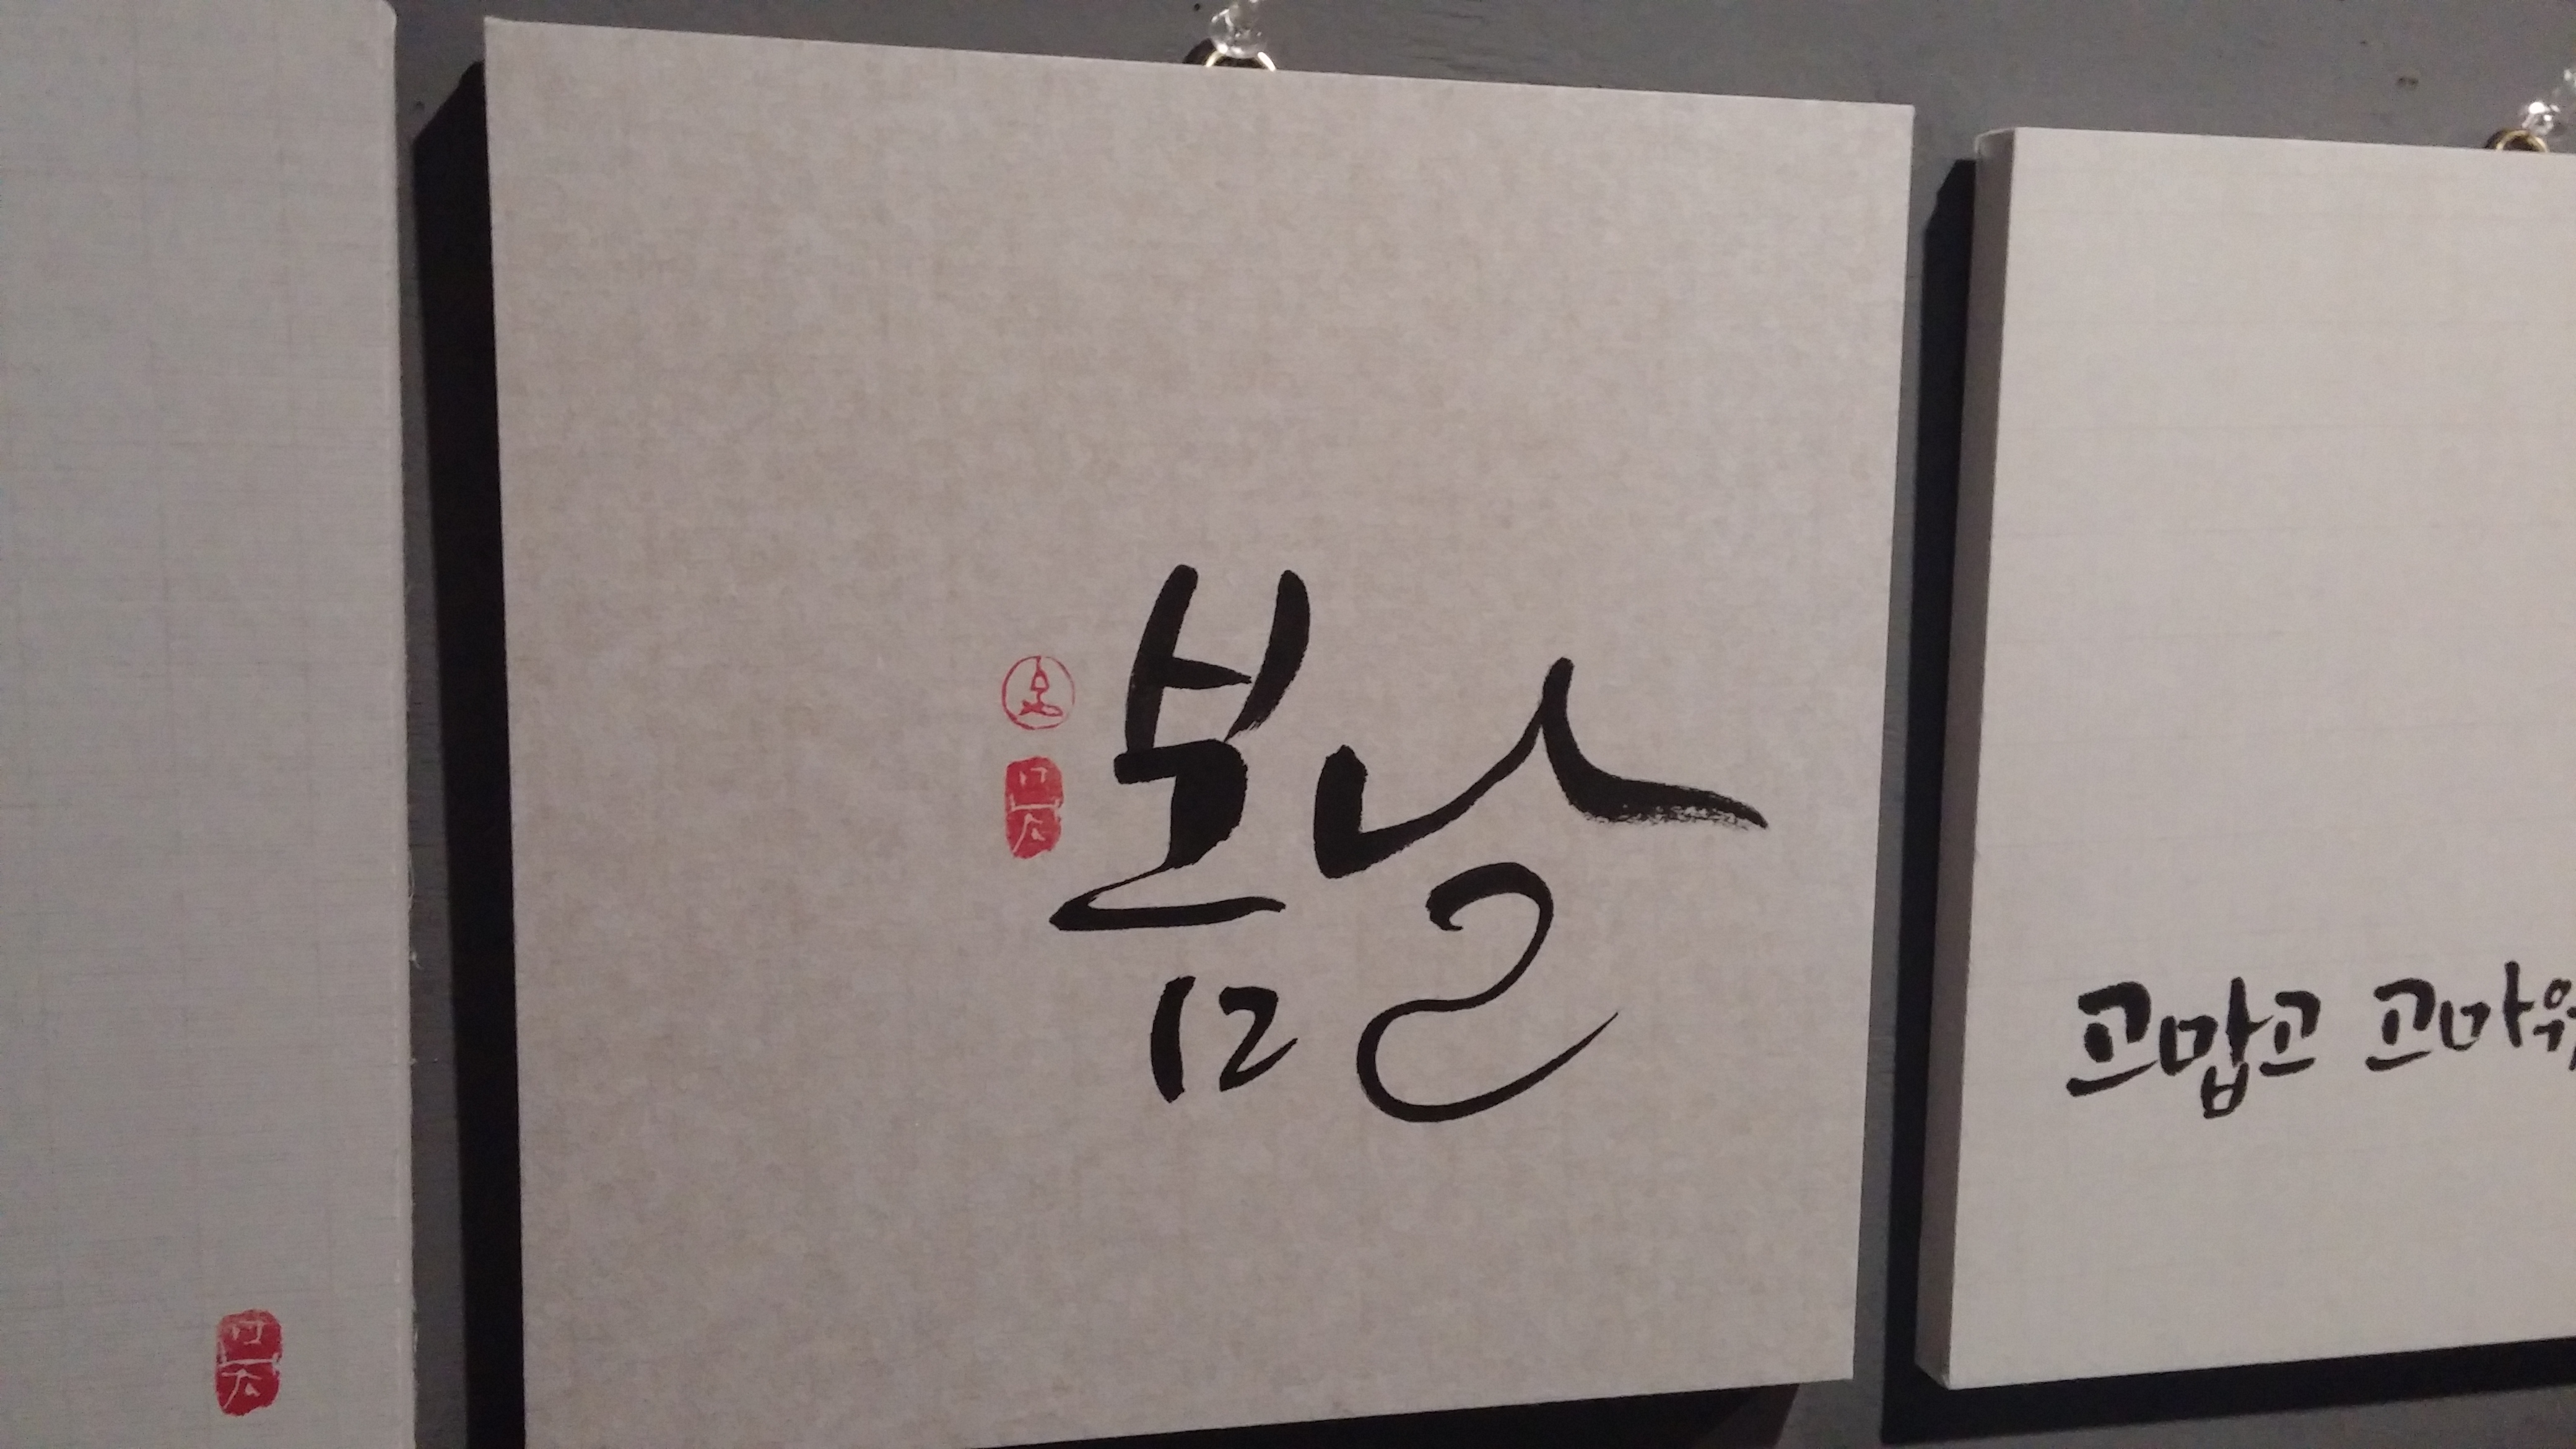 봄날
고맙고 고마워